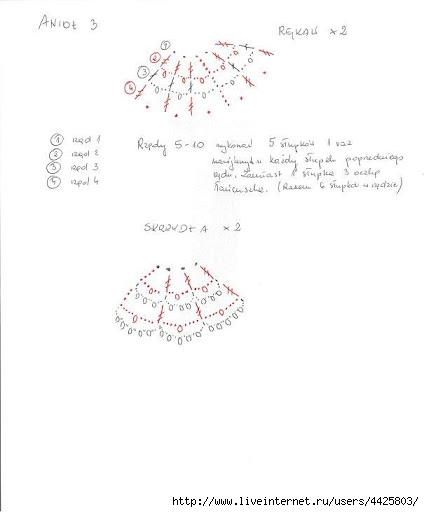 ANIOŁ 3
RĘKAW x2
1
2
3
4
1 rząd 1
2 rząd 2
3 rząd 3
4 rząd 4
Rzędy 5-10 wykonać 5 słupków 1 raz
nawijanych w każdy słupek poprzedniego
rzędu. Zamiast 1 słupka 3 oczka
łańcuszka. (Razem 6 słupków w rzędzie)
SKRZYDŁA x2
http://www.liveinternet.ru/users/4425803/